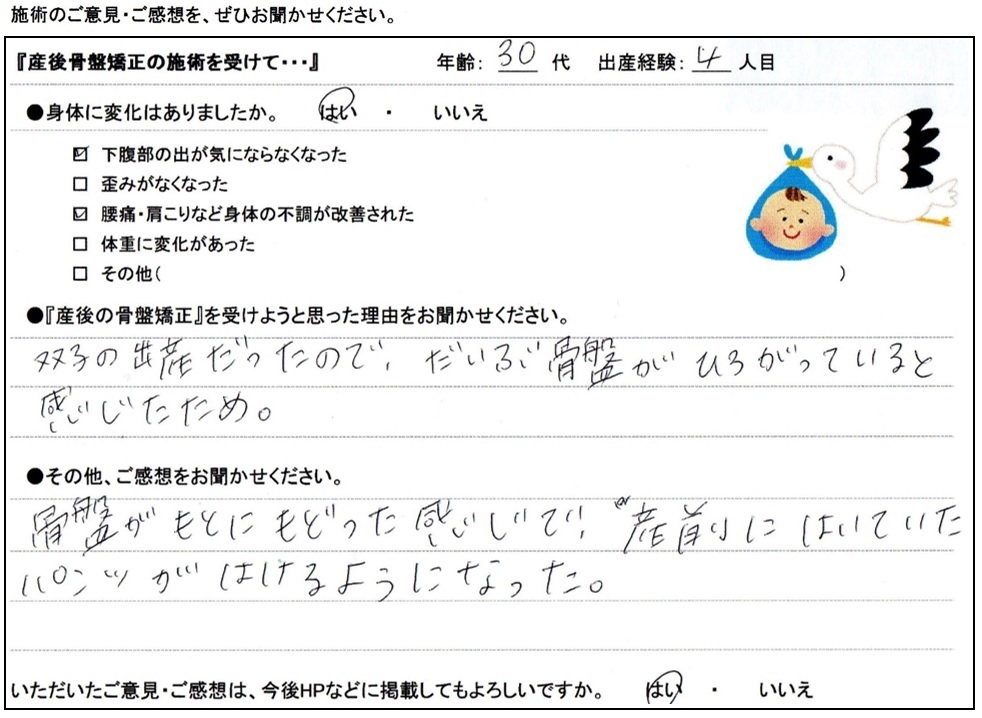 施術のご意見・ご感想を、ぜひお聞かせください。
『産後骨盤矯正の施術を受けて・・・』 年齢: 30 代 出産経験: 4 人目
●身体に変化はありましたか。 はい ・ いいえ
☑ 下腹部の出が気にならなくなった
□ 歪みがなくなった
☑ 腰痛・肩こりなど身体の不調が改善された
□ 体重に変化があった
□ その他( )
●『産後の骨盤矯正』を受けようと思った理由をお聞かせください。
双子の出産だったので、だいぶ骨盤がひろがっていると
感じたため。
●その他、ご感想をお聞かせください。
骨盤がもとにもどった感じで、産前にはいていた
パンツがはけるようになった。
いただいたご意見・ご感想は、今後HPなどに掲載してもよろしいですか。 はい ・ いいえ